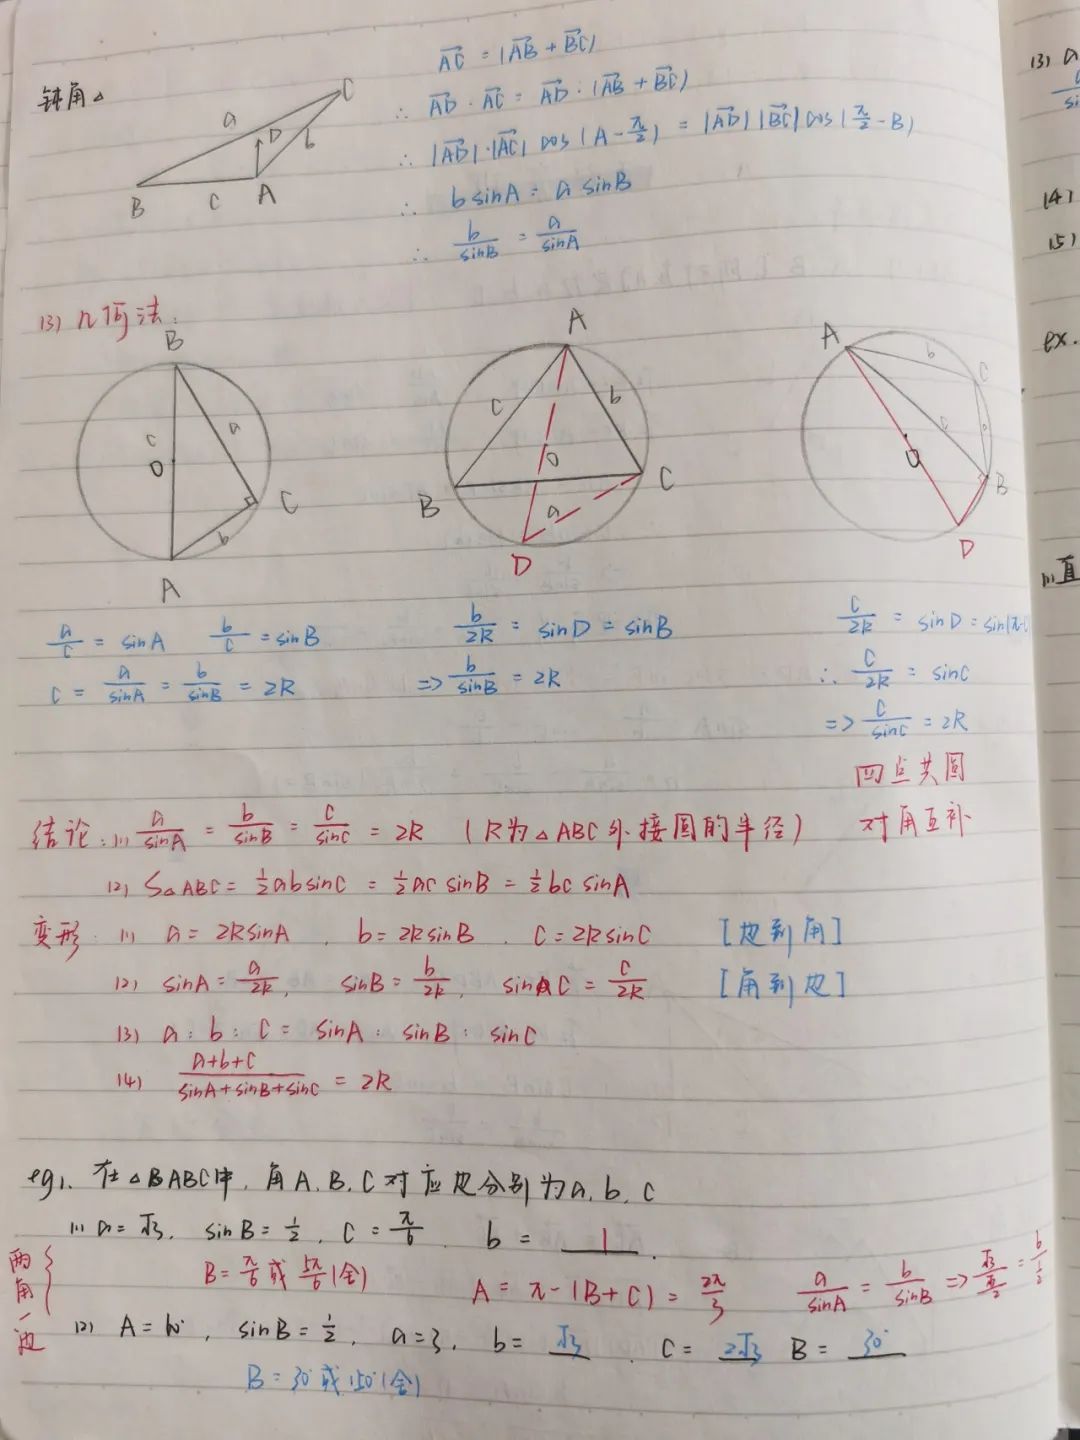 钝角△
AC = (AB + BC)
∴ AD · AC = AD · (AB + BC)
∴ |AD| · |AC| cos(A - π/2) = |AD| |BC| cos(π/2 - B)
∴ b sinA = a sinB
∴ b/sinB = a/sinA
C
a
D
b
B
c
A
(3) 几何法:
B
c
a
O
C
b
A
A
c
b
O
B
C
a
D
A
b
C
c
a
O
B
D
a/c = sinA b/c = sinB
c = a/sinA = b/sinB = 2R
b/2R = sinD = sinB
=> b/sinB = 2R
c/2R = sinD = sin(π-C
∴ c/2R = sinC
=> c/sinC = 2R
四点共圆
对角互补
结论: (1) a/sinA = b/sinB = c/sinC = 2R (R为△ABC外接圆的半径)
(2) S△ABC = 1/2 ab sinC = 1/2 ac sinB = 1/2 bc sinA
变形: (1) a = 2RsinA, b = 2RsinB, c = 2RsinC [边到角]
(2) sinA = a/2R, sinB = b/2R, sinC = c/2R [角到边]
(3) a : b : c = sinA : sinB : sinC
(4) a+b+c/sinA+sinB+sinC = 2R
eg1. 在△ABC中, 角A.B.C对应边分别为a.b.c
(1) a = √3, sinB = 1/2, C = π/6, b = 1.
B = π/6 或 5π/6 (舍) A = π - (B+C) = 2π/3 a/sinA = b/sinB => √3/(√3/2) = b/(1/2)
两角一边
(2) A = 60°, sinB = 1/2, a = 3, b = √3 c = 2√3 B = 30°
B = 30° 或 150° (舍)
(3) a
(4)
(5)
ex.
(1) 直